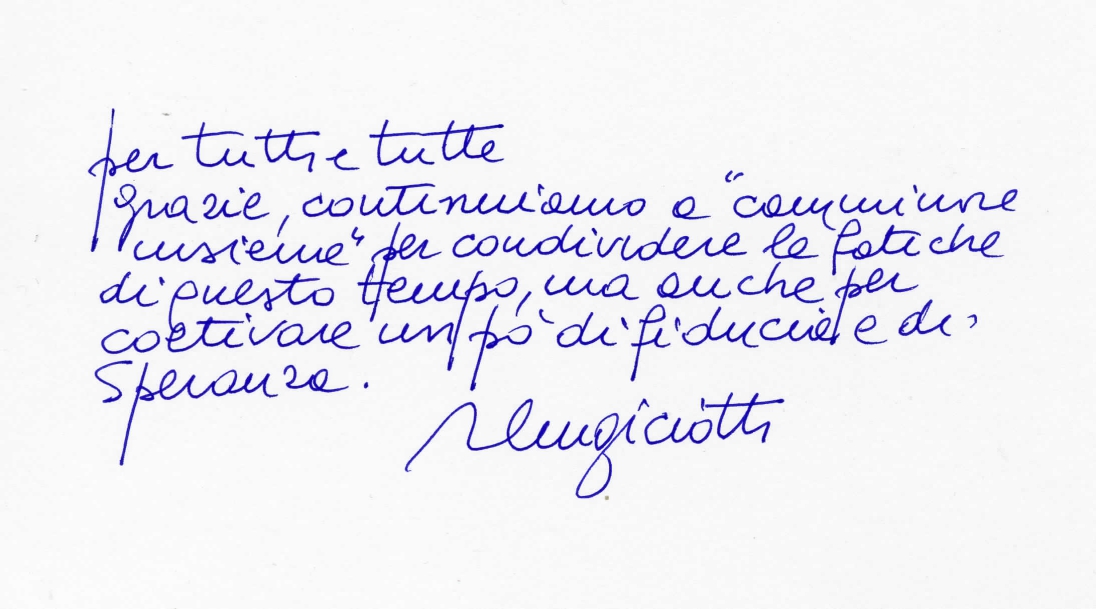 per tutti e tutte
grazie, continuiamo a "camminare
insieme" per condividere le fatiche
di questo tempo, ma anche per
coltivare un pò di fiducia e di
Speranza.